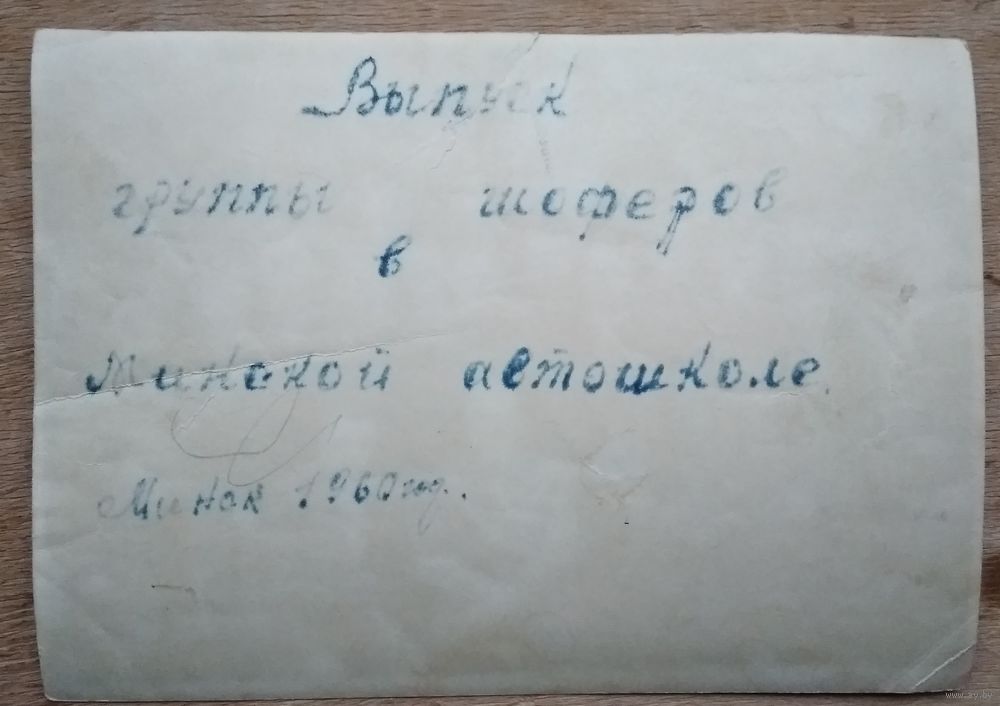 Выпуск
группы шоферов
в
Минской автошколе.
Минск 1960 год.
www.ay.by